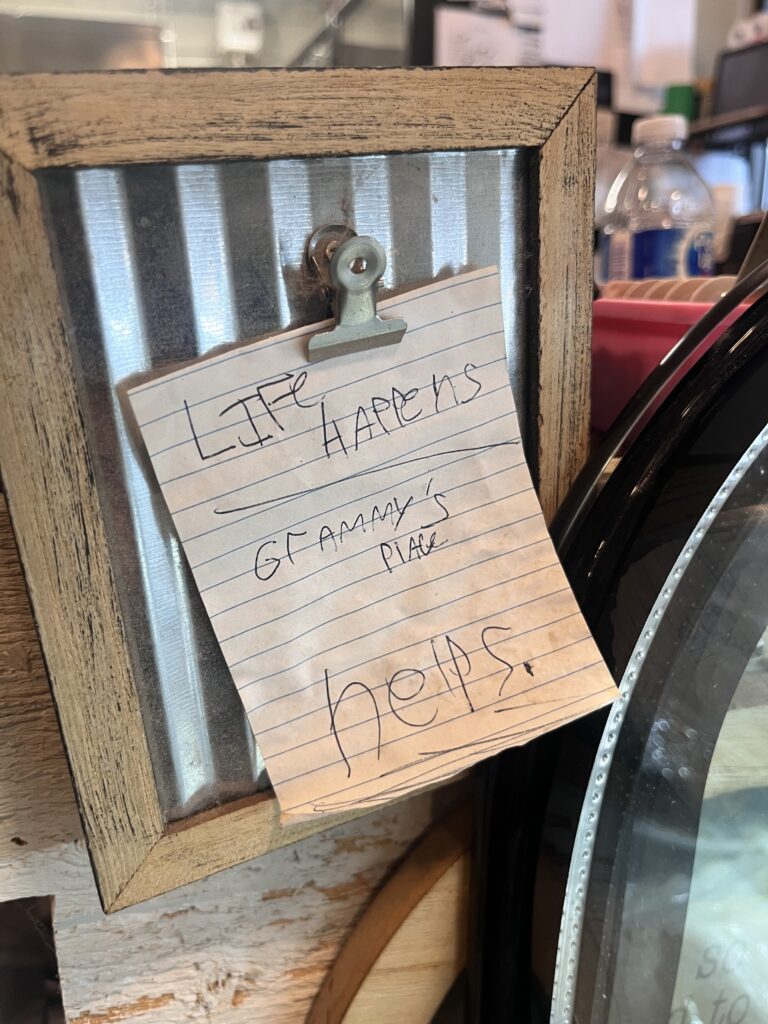 LIFe
HAPPens
GrAMMY's
PlAce
helps.
so
to